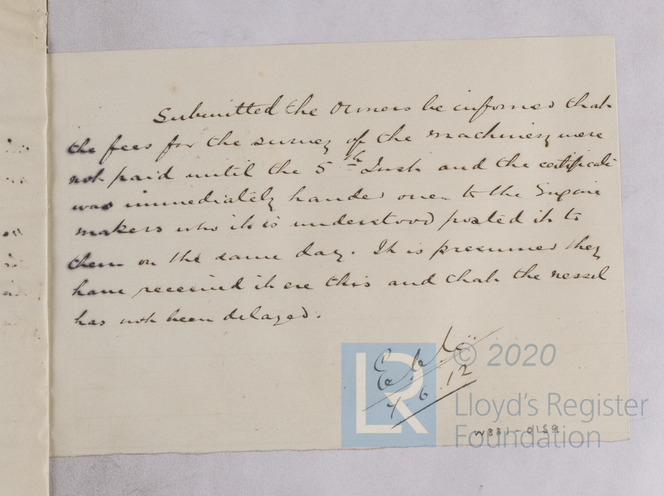 Submitted the Owners be informed that
the fees for the survey of the machinery were
not paid until the 5th Inst and the certificate
was immediately handed over to the Engine
makers who it is understood posted it to
them on the same day. It is presumed they
have received it ere this and that the vessel
has not been delayed.
7.6.12
LR
© 2020
Lloyd's Register
Foundation
W831-0159